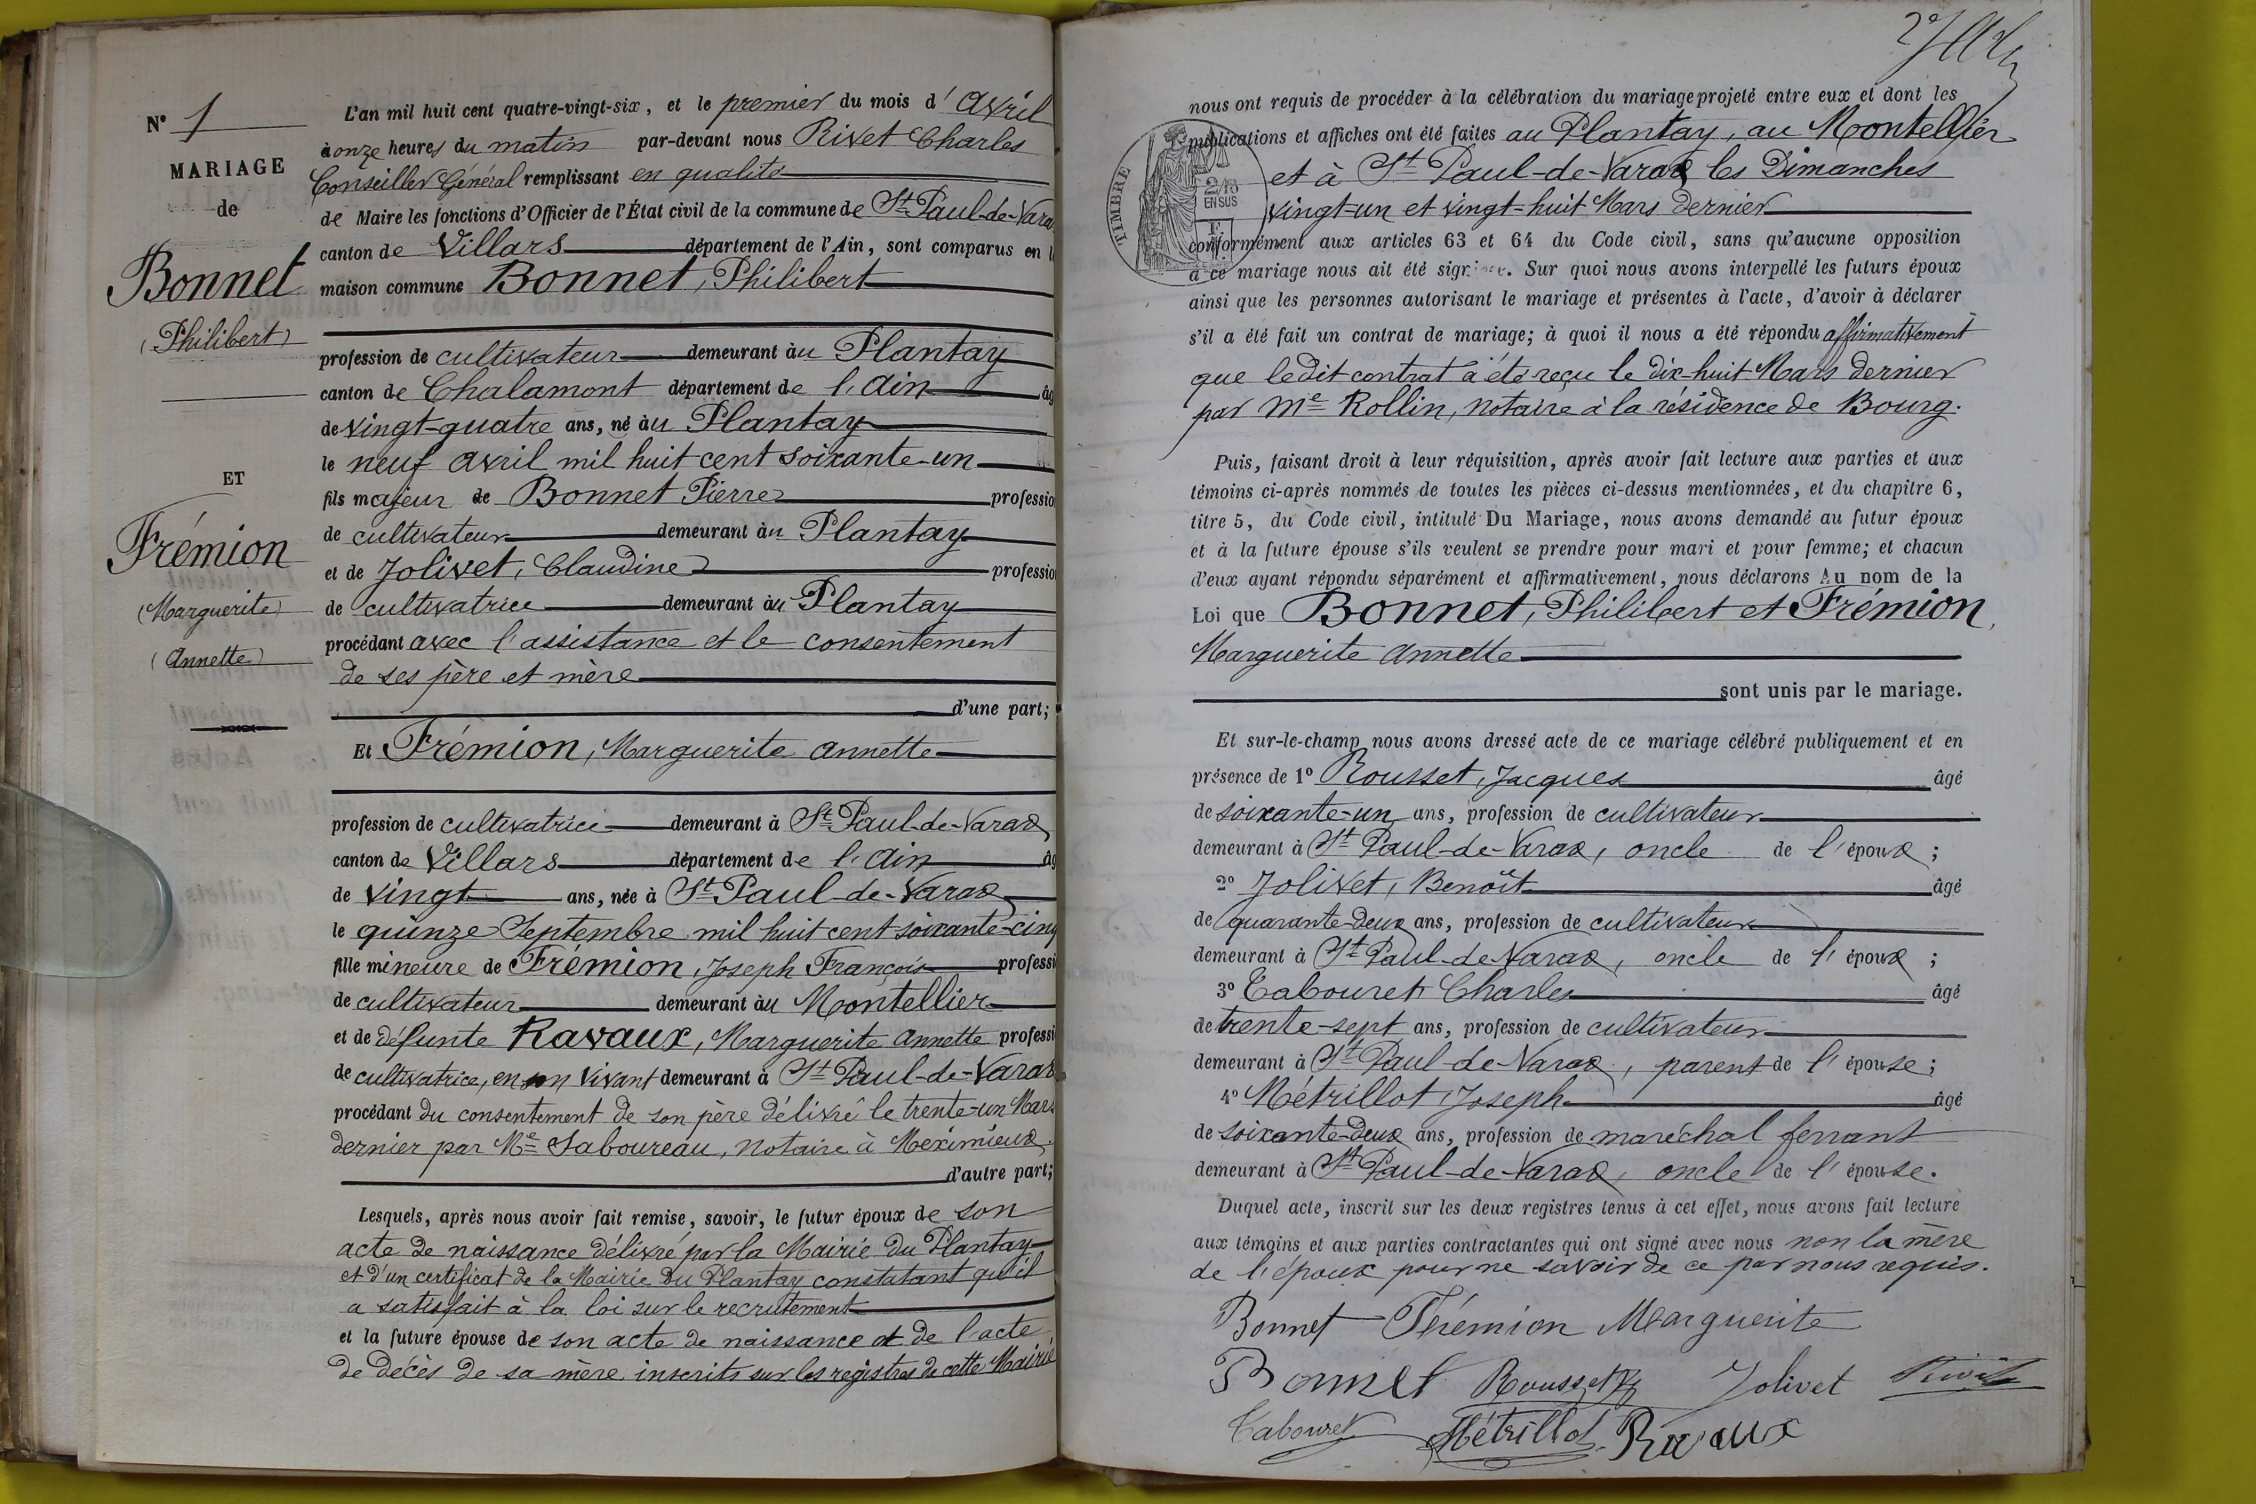 N° 1
MARIAGE
de
Bonnet
(Philibert)
ET
Frémion
(Marguerite)
(Annette)
L'an mil huit cent quatre-vingt-six, et le premier du mois d'Avril
à onze heures du matin par-devant nous Rivet Charles
Conseiller Général remplissant en qualité
de Maire les fonctions d'Officier de l'État civil de la commune de St Paul-de-Varax
canton de Villars département de l'Ain, sont comparus en l
maison commune Bonnet, Philibert
profession de cultivateur demeurant au Plantay
canton de Chalamont département de l'Ain âg
de vingt-quatre ans, né au Plantay
le neuf avril mil huit cent soixante-un
fils majeur de Bonnet Pierre professio
de cultivateur demeurant au Plantay
et de Jolivet, Claudine professio
de cultivatrice demeurant au Plantay
procédant avec l'assistance et le consentement
de ses père et mère
d'une part;
Et Frémion, Marguerite Annette
profession de cultivatrice demeurant à St Paul-de-Varax
canton de Villars département de l'Ain âg
de vingt ans, née à St Paul-de-Varax
le quinze Septembre mil huit cent soixante-cinq
fille mineure de Frémion, Joseph François professi
de cultivateur demeurant au Montellier
et de défunte Ravaux, Marguerite Annette professi
de cultivatrice, en son vivant demeurant à St Paul-de-Varax
procédant du consentement de son père délivré le trente-un Mars
dernier par Me Saboureau, Notaire à Meximieux
d'autre part;
Lesquels, après nous avoir fait remise, savoir, le futur époux de son
acte de naissance délivré par la Mairie du Plantay
et d'un certificat de la Mairie du Plantay constatant qu'il
a satisfait à la loi sur le recrutement
et la future épouse de son acte de naissance et de l'acte
de décès de sa mère inscrits sur les registres de cette Mairie
nous ont requis de procéder à la célébration du mariage projeté entre eux et dont les
publications et affiches ont été faites au Plantay, au Montellier
et à St Paul-de-Varax les Dimanches
vingt-un et vingt-huit Mars dernier
TIMBRE
EN SUS
conformément aux articles 63 et 64 du Code civil, sans qu'aucune opposition
à ce mariage nous ait été signifiée. Sur quoi nous avons interpellé les futurs époux
ainsi que les personnes autorisant le mariage et présentes à l'acte, d'avoir à déclarer
s'il a été fait un contrat de mariage; à quoi il nous a été répondu affirmativement
que ledit contrat a été reçu le dix-huit Mars dernier
par Me Rollin, notaire à la résidence de Bourg.
Puis, faisant droit à leur réquisition, après avoir fait lecture aux parties et aux
témoins ci-après nommés de toutes les pièces ci-dessus mentionnées, et du chapitre 6,
titre 5, du Code civil, intitulé Du Mariage, nous avons demandé au futur époux
et à la future épouse s'ils veulent se prendre pour mari et pour femme; et chacun
d'eux ayant répondu séparément et affirmativement, nous déclarons Au nom de la
Loi que Bonnet, Philibert et Frémion,
Marguerite Annette
sont unis par le mariage.
Et sur-le-champ nous avons dressé acte de ce mariage célébré publiquement et en
présence de 1° Rousset, Jacques âgé
de soixante-un ans, profession de cultivateur
demeurant à St Paul-de-Varax, oncle de l'époux;
2° Jolivet, Benoît âgé
de quarante-deux ans, profession de cultivateur
demeurant à St Paul-de-Varax, oncle de l'époux;
3° Tabouret Charles âgé
de trente-sept ans, profession de cultivateur
demeurant à St Paul-de-Varax, parent de l'épouse;
4° Métrillot, Joseph âgé
de soixante-deux ans, profession de maréchal ferrant
demeurant à St Paul-de-Varax, oncle de l'épouse.
Duquel acte, inscrit sur les deux registres tenus à cet effet, nous avons fait lecture
aux témoins et aux parties contractantes qui ont signé avec nous non la mère
de l'époux pour ne savoir de ce par nous requis.
Bonnet Frémion Marguerite
Bonnet Rousset Jolivet Rivet
Tabouret Métrillot Ravaux